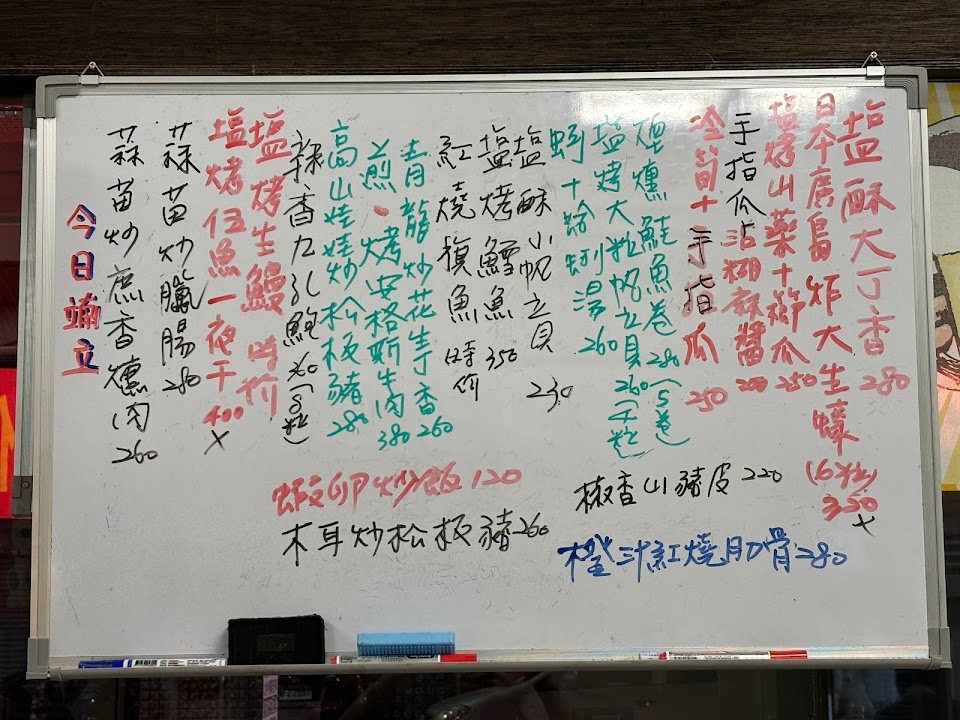 塩酥大丁香 280
日本廣島炸大生蠔(6粒) 350 x
塩烤山藥+節瓜 250
手指瓜沾糊麻醬 200
冷筍+手指瓜 250
煙燻鮭魚卷 280(5卷)
塩烤大粒帆立貝 260(4粒)
蚵+蛤蜊湯 260
塩酥小帆立貝 230
塩烤鱈魚 350
紅燒䫖魚 時价
青龍炒花生丁香 260
煎.烤安格斯牛肉 380
高山娃娃炒松板豬 280
辣香九孔鮑 360(8粒)
塩烤生鰻 時价
塩烤伍魚一夜干 400 x
蒜苗炒臘腸 280
蒜苗炒蔗香燻肉 260
今日竝立
蝦卵炒飯 120
木耳炒松板豬 260
椒香山豬皮 220
橙汁紅燒肋骨 280